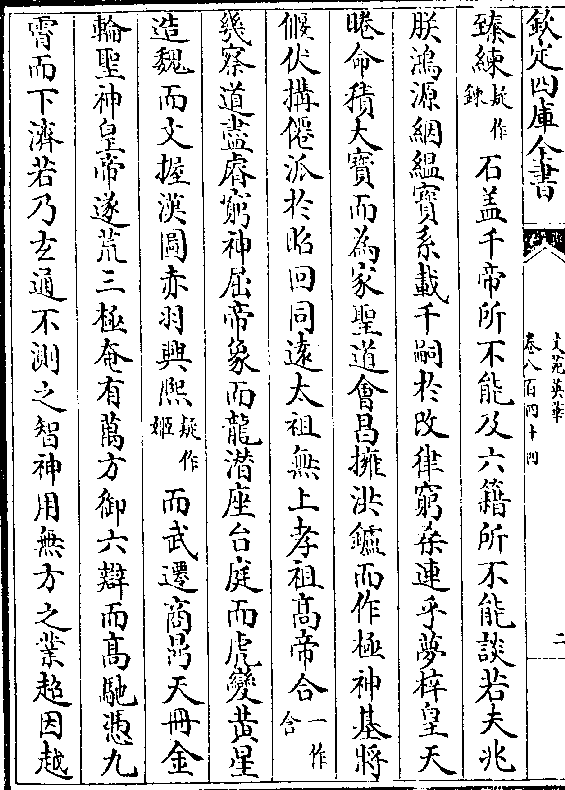 欽定四庫全書
文苑英華
卷八百四十四
二
臻練疑作鍊石盖千帝所不能及六籍所不能談若夫兆
朕鴻源絪緼寳系載千嗣於改律窮葉連乎夢梓皇天
睠命積大寳而為家聖道會昌擁洪鑪而作極神基將
偃伏搆僊派於昭回同遠太祖無上孝祖髙帝合一作含
幾察道盡睿窮神屈帝象而龍潛座台庭而虎變黄星
造魏而文握漢圖赤羽興熙疑作姬而武遷商鼎天冊金
輪聖神皇帝遂荒三極奄有萬方御六辯而髙馳憑九
霄而下濟若乃玄通不測之智神用無方之業超因越